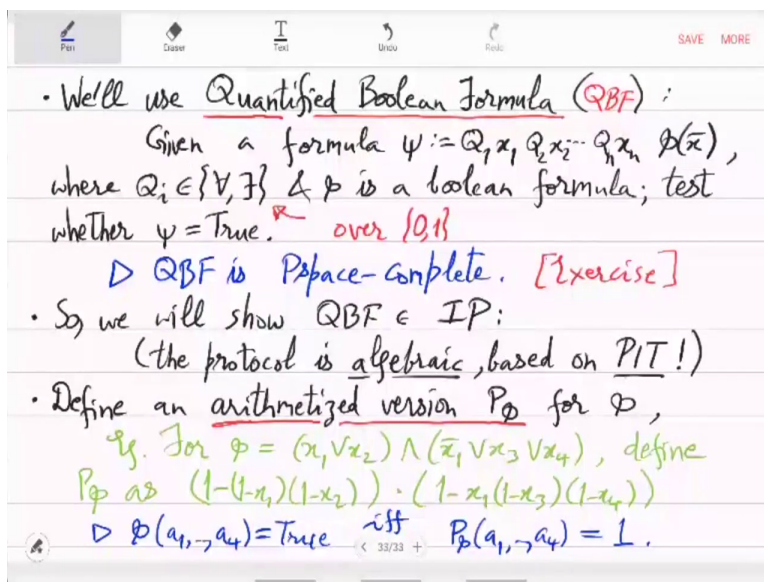 Pen Eraser Text Undo Redo SAVE MORE
• We'll use Quantified Boolean Formula (QBF) :
Given a formula ψ := Q₁x₁ Q₂x₂ ... Qₙxₙ φ(x̄) ,
where Qᵢ ∈ {∀,∃} & φ is a boolean formula; test
whether ψ = True. over {0,1}
▷ QBF is Pspace-complete. [Exercise]
• So, we will show QBF ∈ IP:
(the protocol is algebraic, based on PIT!)
• Define an arithmetized version P_φ for φ,
Eg. For φ = (x₁ ∨ x₂) ∧ (x̄₁ ∨ x₃ ∨ x₄) , define
P_φ as (1-(1-x₁)(1-x₂)) · (1-x₁(1-x₃)(1-x₄))
▷ φ(a₁,..,a₄) = True iff P_φ(a₁,..,a₄) = 1 .
< 33/33 +